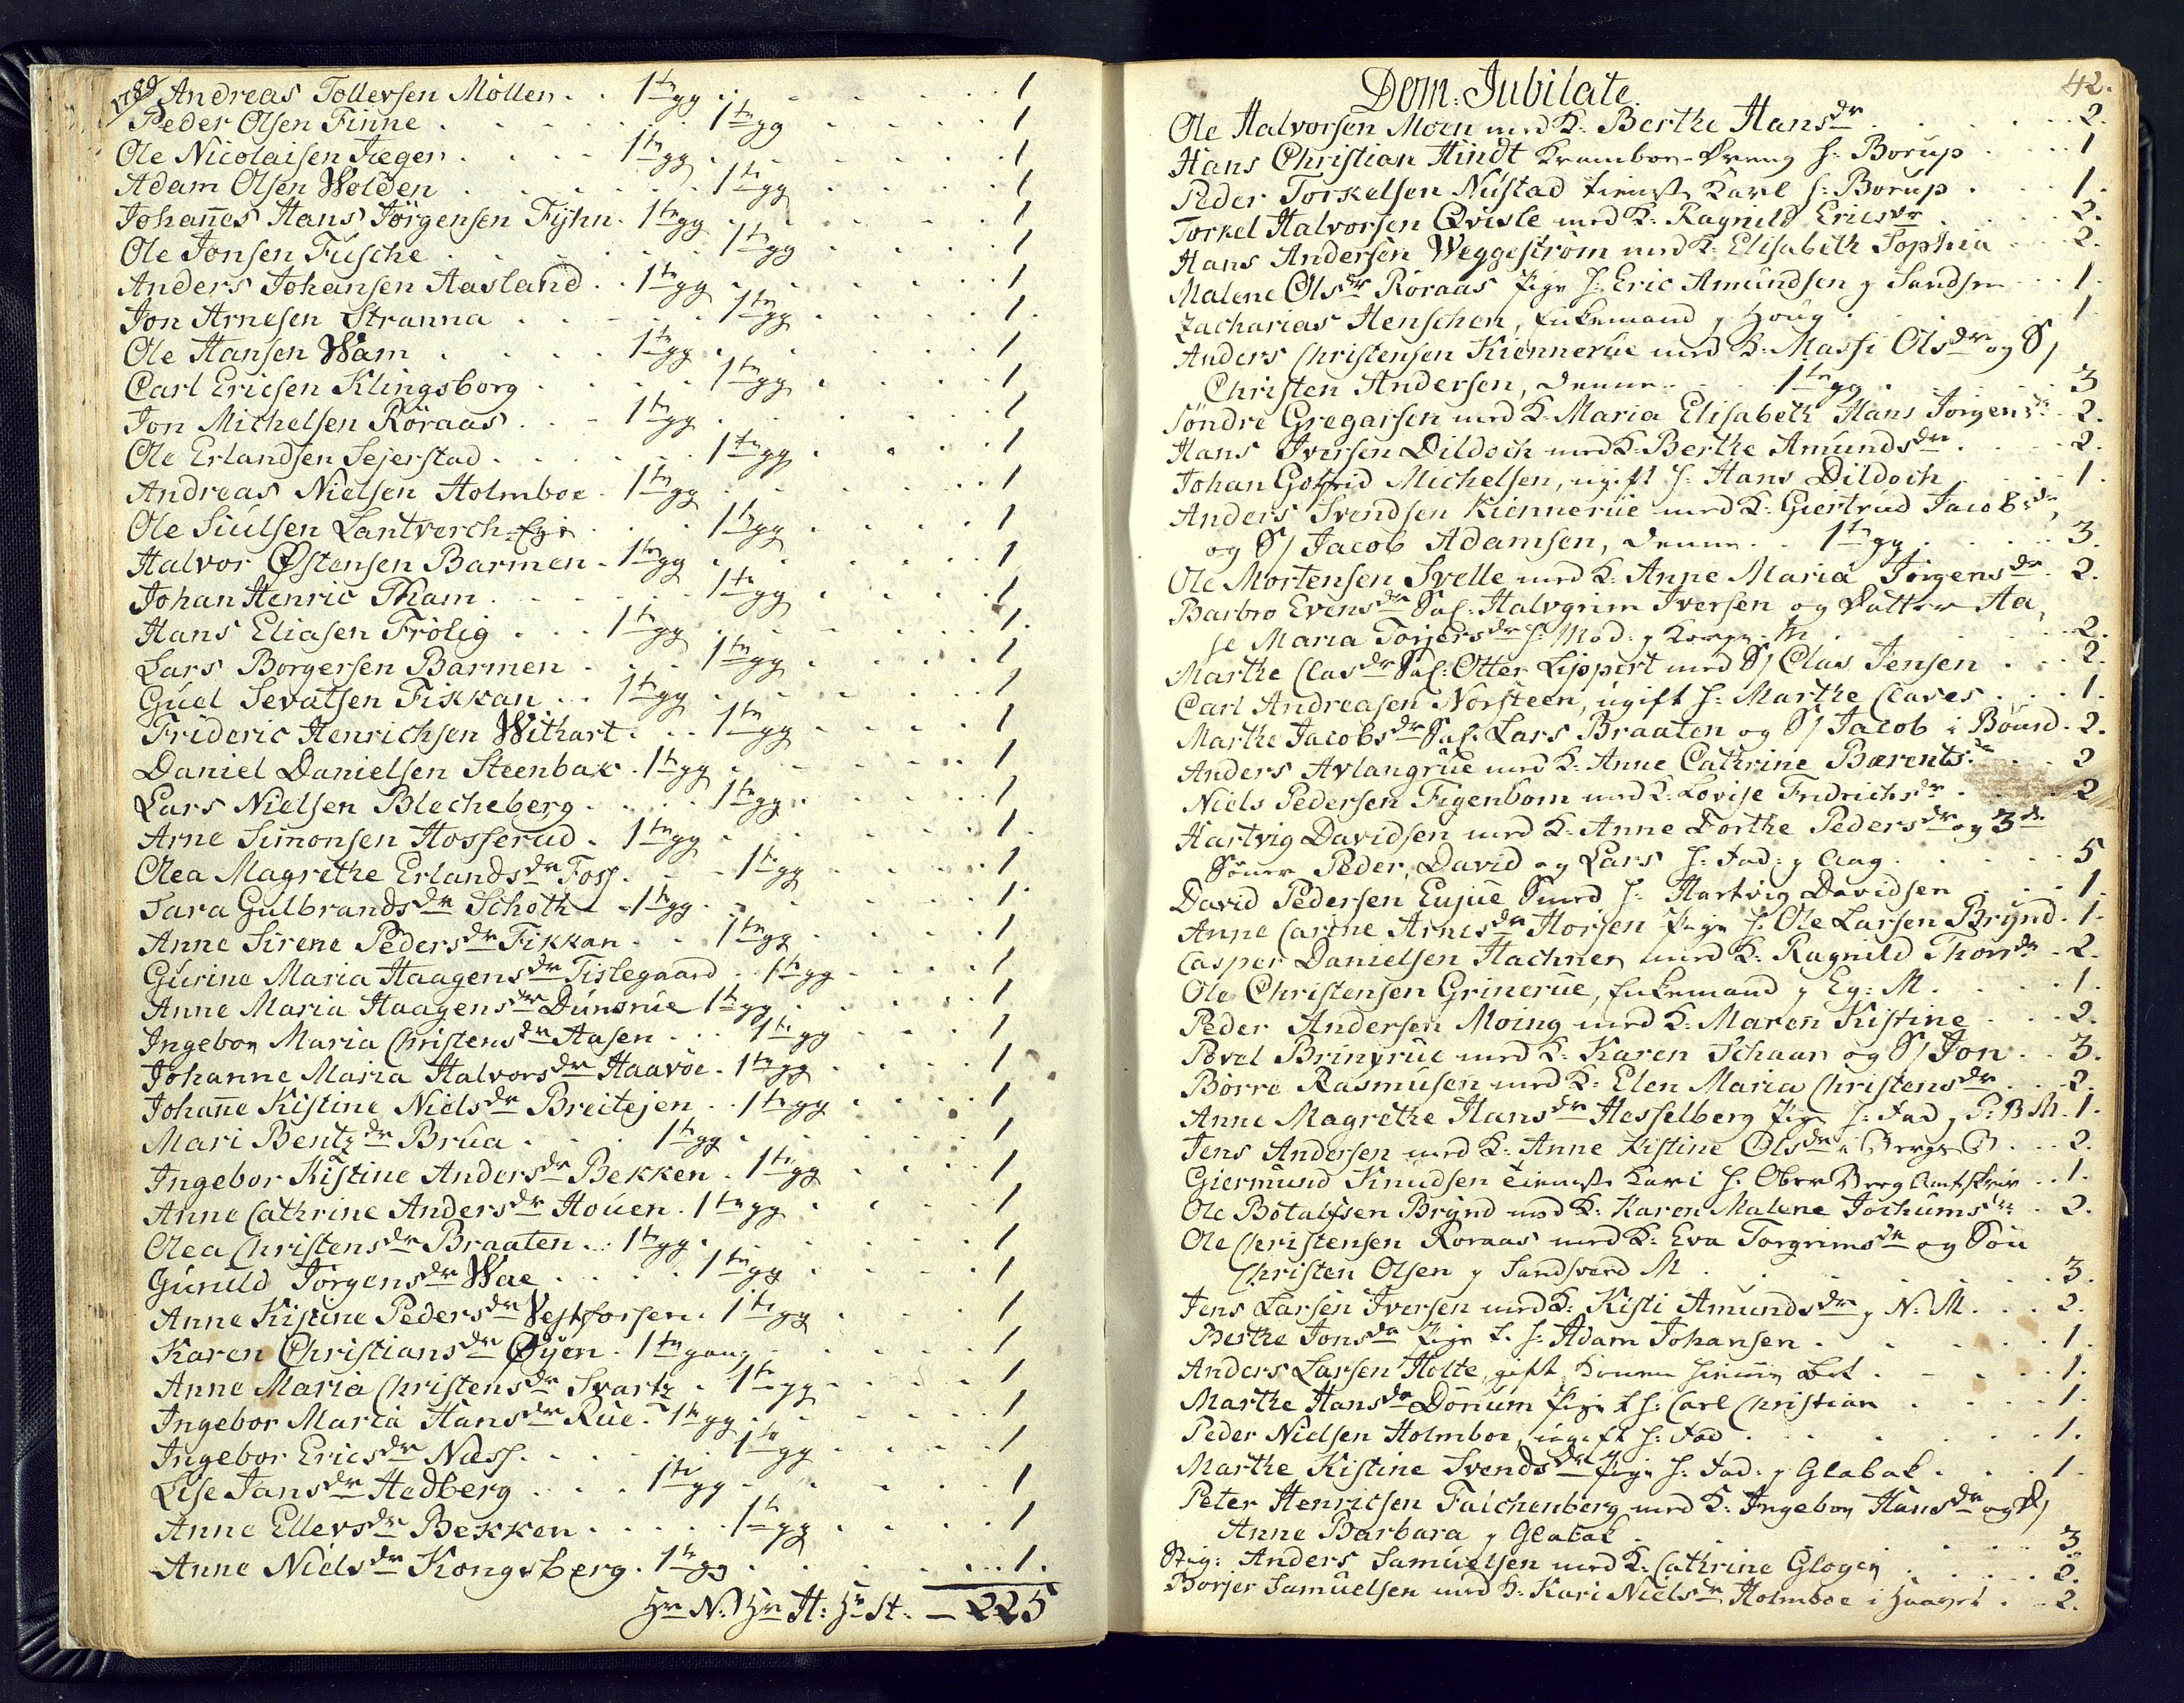 1789
Andreas Tollevsen Möllen . . 1ste gg . . . 1
Peder Olsen Finne . . . 1ste gg . . . 1
Ole Nicolaisen Jæger . . . 1ste gg . . . 1
Adam Olsen Wolden . . . 1ste gg . . . 1
Johan̄es Hans Jörgensen Fÿhn . 1ste gg . . . 1
Ole Jonsen Fusche . . . 1ste gg . . . 1
Anders Johansen Aasland . . 1ste gg . . . 1
Jon Arnesen Stranna . . . 1ste gg . . . 1
Ole Hansen Wam . . . 1ste gg . . . 1
Carl Ericsen Klingsborg . . . 1ste gg . . . 1
Jon Michelsen Röraas . . . 1ste gg . . . 1
Ole Erlandsen Sejerstad . . . 1ste gg . . . 1
Andreas Nielsen Holmboe . 1ste gg . . . 1
Ole Siulsen Lantverch-Eje . . . 1ste gg . . . 1
Halvor Østensen Barmen . 1ste gg . . . 1
Johan Henric Tham . . . 1ste gg . . . 1
Hans Eliasen Frölig . . . 1ste gg . . . 1
Lars Borgersen Barmen . . . 1ste gg . . . 1
Guel Sevatsen Fikkan . . 1ste gg . . . 1
Frideric Henrichsen Withart . . . 1ste gg . . . 1
Daniel Danielsen Steenbak . 1ste gg . . . 1
Lars Nielsen Blecheberg . . . 1ste gg . . . 1
Arne Simonsen Hosserud . 1ste gg . . . 1
Olea Magrethe Erlandsdr Foss . . . 1ste gg . . . 1
Sara Gulbrandsdr Schoth . 1ste gg . . . 1
Anne Sirene Pedersdr Fikkan . . 1ste gg . . . 1
Gurine Maria Haagensdr Tislegaard . 1ste gg . . . 1
Anne Maria Haagensdr Dunsrue 1ste gg . . . 1
Ingebor Maria Christensdr Aasen . . . 1ste gg . . . 1
Johanne Maria Halvorsdr Haavöe . 1ste gg . . . 1
Johan̄e Kistine Nielsdr Breitejen . . 1ste gg . . . 1
Mari Bentzdr Brua . . . 1ste gg . . . 1
Ingebor Kistine Andersdr Bekken . 1ste gg . . . 1
Anne Cathrine Andersdr Houen . 1ste gg . . . 1
Olea Christensdr Braaten . . 1ste gg . . . 1
Gunild Jörgensdr Wae . . . 1ste gg . . . 1
Anne Kistine Pedersdr Vestfossen . 1ste gg . . . 1
Karen Christiansdr Øÿen . 1ste gang . . . 1
Anne Maria Christensdr Svartz . 1ste gg . . . 1
Ingebor Maria Hansdr Rue . 1ste gg . . . 1
Ingebor Ericsdr Næss . . . 1ste gg . . . 1
Lise Jansdr Hedberg . . . 1ste gg . . . 1
Anne Ellevsdr Bekken . . . 1ste gg . . . 1
Anne Nielsdr Kongsberg . 1ste gg . . . 1.
Hr N: Hr H: Hr St: — 225
42.
Dom: Jubilate.
Ole Halvorsen Moen med K: Berthe Hansdr . . . 2.
Hans Christian Hindt Kramboe-Dreng h: Borup . . . 1
Peder Torkelsen Nustad tieneste Karl h: Borup . . . 1.
Torkel Halvorsen Qvisle med K: Ragnild Ericsdr . . . 2.
Hans Andersen Weggeström med K: Elisabeth Sophia . . . 2.
Malene Olsdr Röraas Pige h: Eric Amundsen J Sandsv . . . 1.
Zacharias Henschen, Enkemand J Houg . . . 1
Anders Christensen Kiennerue med K: Massi Olsdr og S/
Christen Andersen, denne . . . 1ste gg . . . 3
Söndre Gregarsen med K: Maria Elisabeth Hans Jörgensdr . 2.
Hans Iversen Dildoch med K: Berthe Amundsdr . . . 2.
Johan Gotfrid Michelsen, ugift h: Hans Dildoch . . . 1.
Anders Svendsen Kiennerue med K: Giertrud Jacobsdr,
og S/ Jacob Adamsen, denne . . 1ste gg . . . 3.
Ole Mortensen Svelle med K: Anne Maria Jörgensdr . 2.
Barbro Evensdr Sal: Halvgrim Iversen og Datter Aa,
se Maria Torjersdr h: Mod: . . . 2.
Marthe Clasdr Sal: Otter Lippert med S/ Clas Jensen . . . 2.
Carl Andreasen Norsteen, ugift h: Marthe Clases . . . 1.
Marthe Jacobsdr Sal: Lars Braaten og S/ Jacob i Böund . 2.
Anders Avlangrue med K: Anne Cathrine Bærentsdr . . 2
Niels Pedersen Figenbom med K: Lovise Fridrichsdr . . . 2
Hartvig Davidsen med K: Anne Dorthe Pedersdr og 3de
Sönner Peder, David og Lars h: Fad: J Aag . . . 5
David Pedersen Eujue Smed h: Hartvig Davidsen . . . 1.
Anne Carine Arnesdr Horsen Pige h: Ole Larsen Brÿnd . 1.
Casper Danielsen Hachner med K: Ragnild Thorsdr . 2.
Ole Christensen Grinerue, Enkemand J Eg: M . . . 1.
Peder Andersen Moing med K: Maren Kistine . . . 2.
Povel Brinxrue med K: Karen Schaar og S/ Jon . . 3.
Börre Rasmusen med K: Elen Maria Christensdr . . . 2.
Anne Magrethe Hansdr Hesselberg Pige h: Fad J P: B M . 1.
Jens Andersen med K: Anne Kistine Olsdr . . . 2.
Giermund Knudsen tieneste Karl h: Ober Berg Amtskriv . . 1.
Ole Botalfsen Brÿnd med K: Karen Malene Jochumsdr . 2.
Ole Christensen Roraas med K: Eva Torgrimsdr og Sön
Christen Olsen J Sandsverd M . . . 3.
Jens Larsen Iversen med K: Kisti Amundsdr J N: M . . . 2.
Berthe Jonsdr Pige t. h: Adam Johansen . . . 1.
Anders Larsen Holte, gift, Konen . . . 1.
Marthe Hansdr Dorium Pige t h: Carl Christian . . . 1.
Peder Nielsen Holmboe, ugift h: Fad . . . 1.
Marthe Kistine Svendsdr Pige h: Fad: J Glabak . . . 1.
Peter Henricsen Falchenberg med K: Ingebor Hansdr og D/
Anne Barbara J Glabak . . . 3
Stig: Anders Samuelsen med K: Cathrine Gloger . . . 2.
Borjer Samuelsen med K: Kari Nielsdr Holmboe i . . . 2.